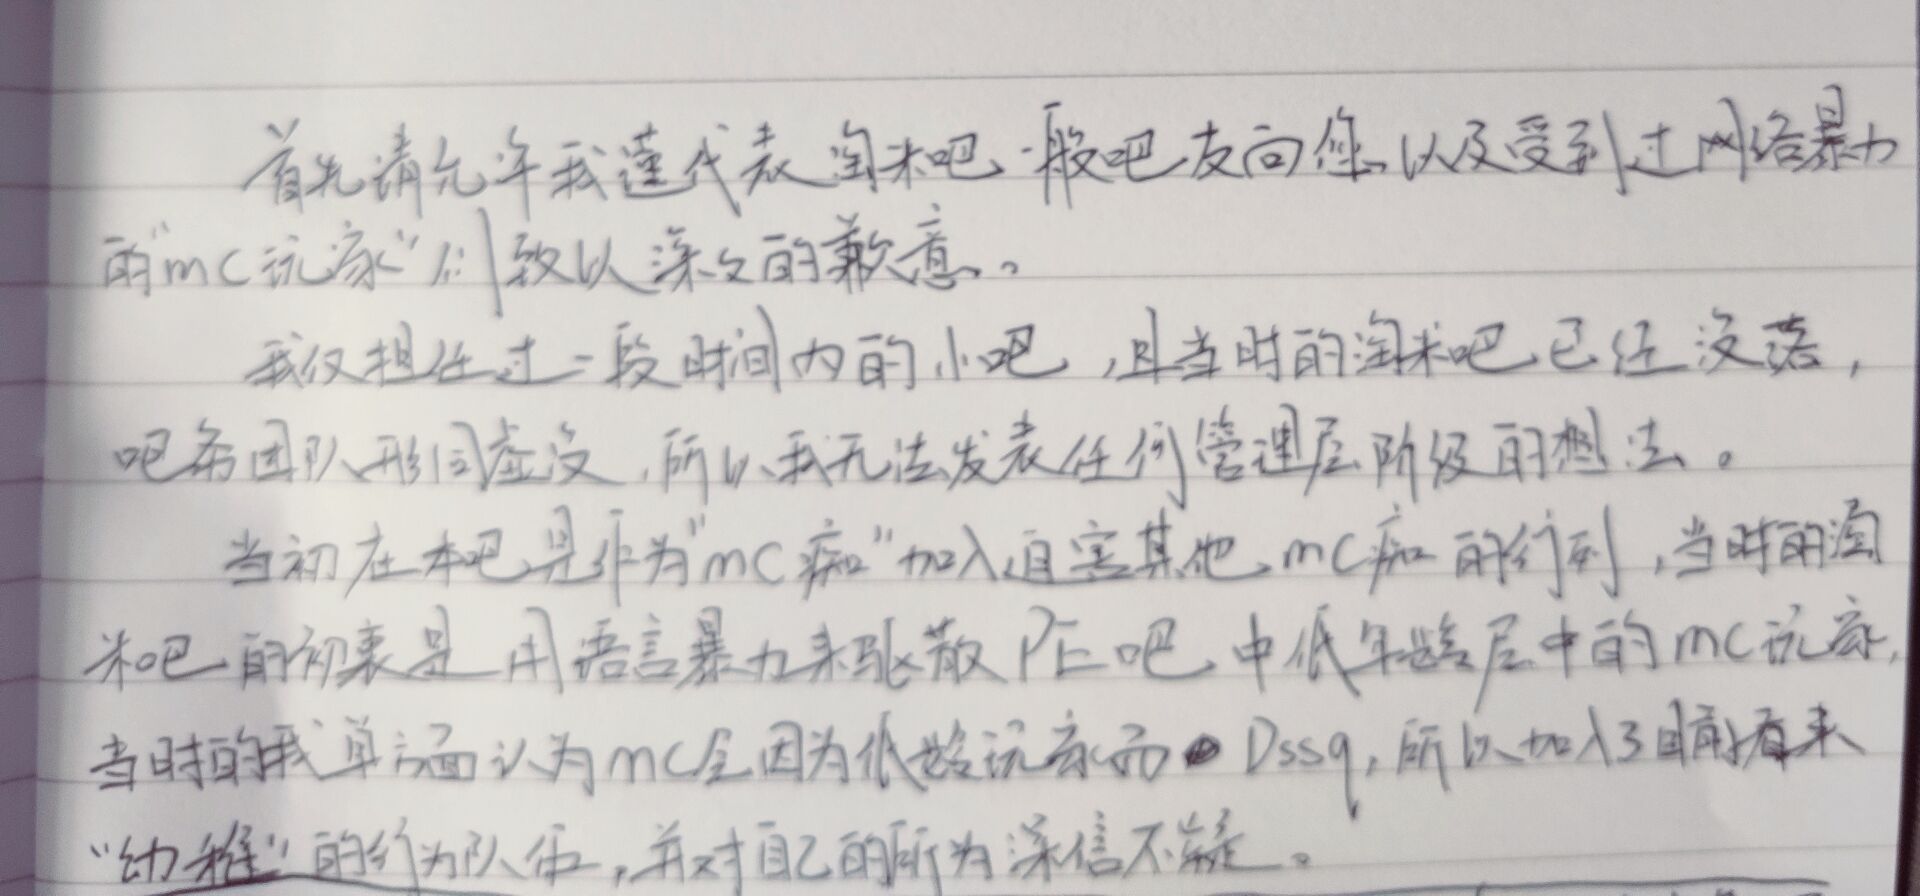 首先请允许我谨代表淘米吧一般吧友向您以及受到过网络暴力
的"mc玩家"们致以深久的歉意。
我仅担任过一段时间内的小吧,且当时的淘米吧已经没落,
吧务团队形同虚设,所以我无法发表任何管理层阶级的想法。
当初在本吧是作为"mc痴"加入迫害其他mc痴的行列,当时的淘
米吧的初衷是用语言暴力来驱散PE吧中低年龄层中的mc玩家,
当时的我单方面认为mc会因为低龄玩家而Dssq,所以加入了目前看来
"幼稚"的行为队伍,并对自己的所为深信不疑。